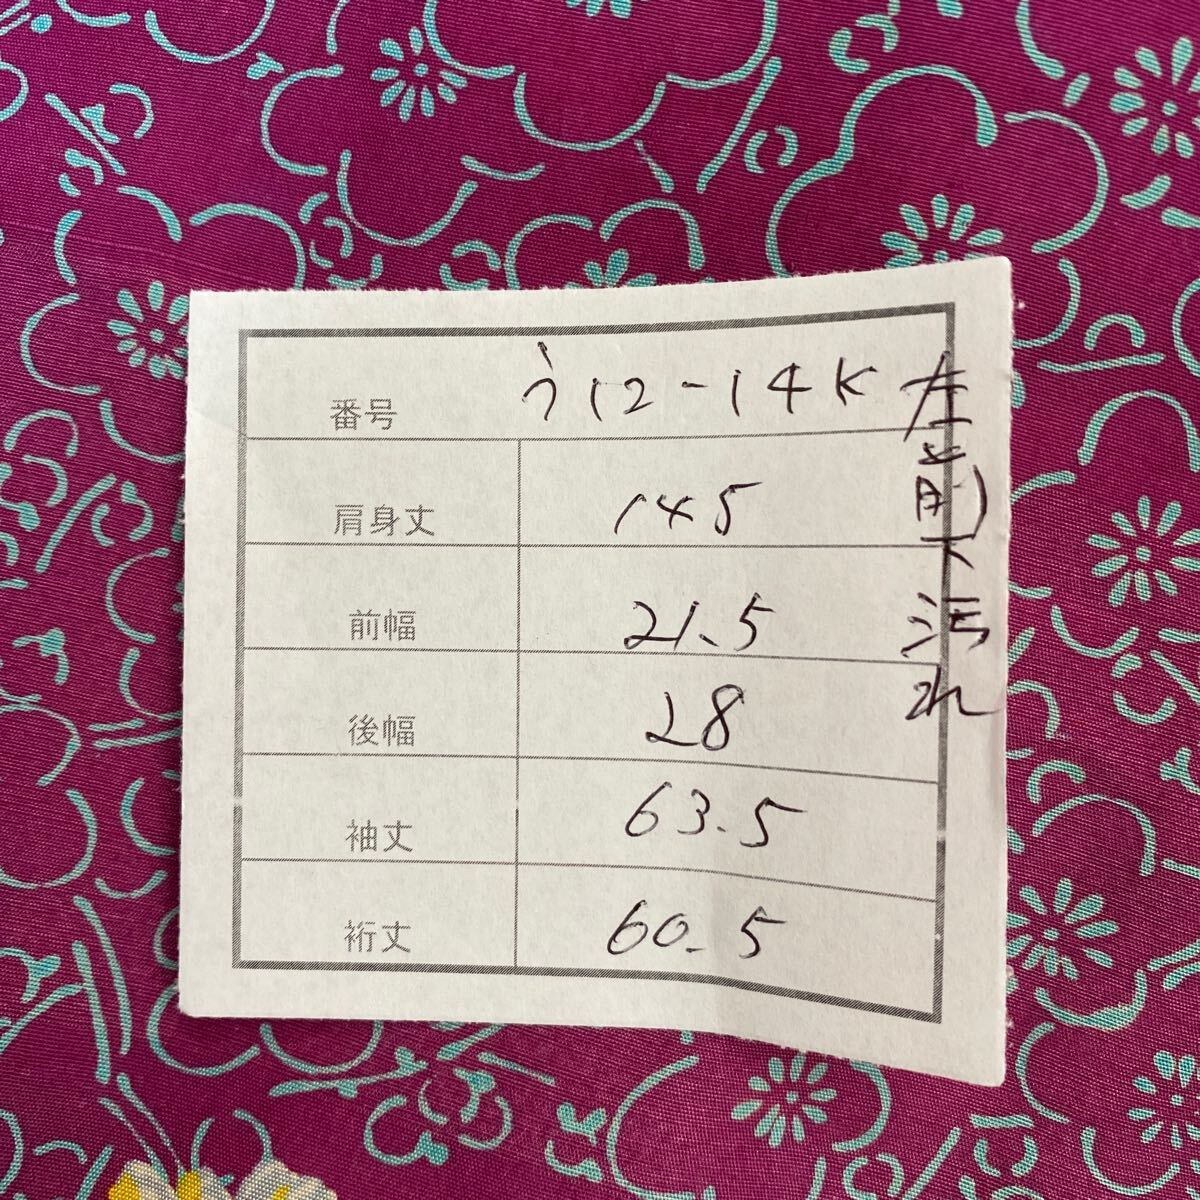 番号 う12-14K
肩身丈 145
前幅 21.5
後幅 28
袖丈 63.5
裄丈 60.5
左と前下汚れ